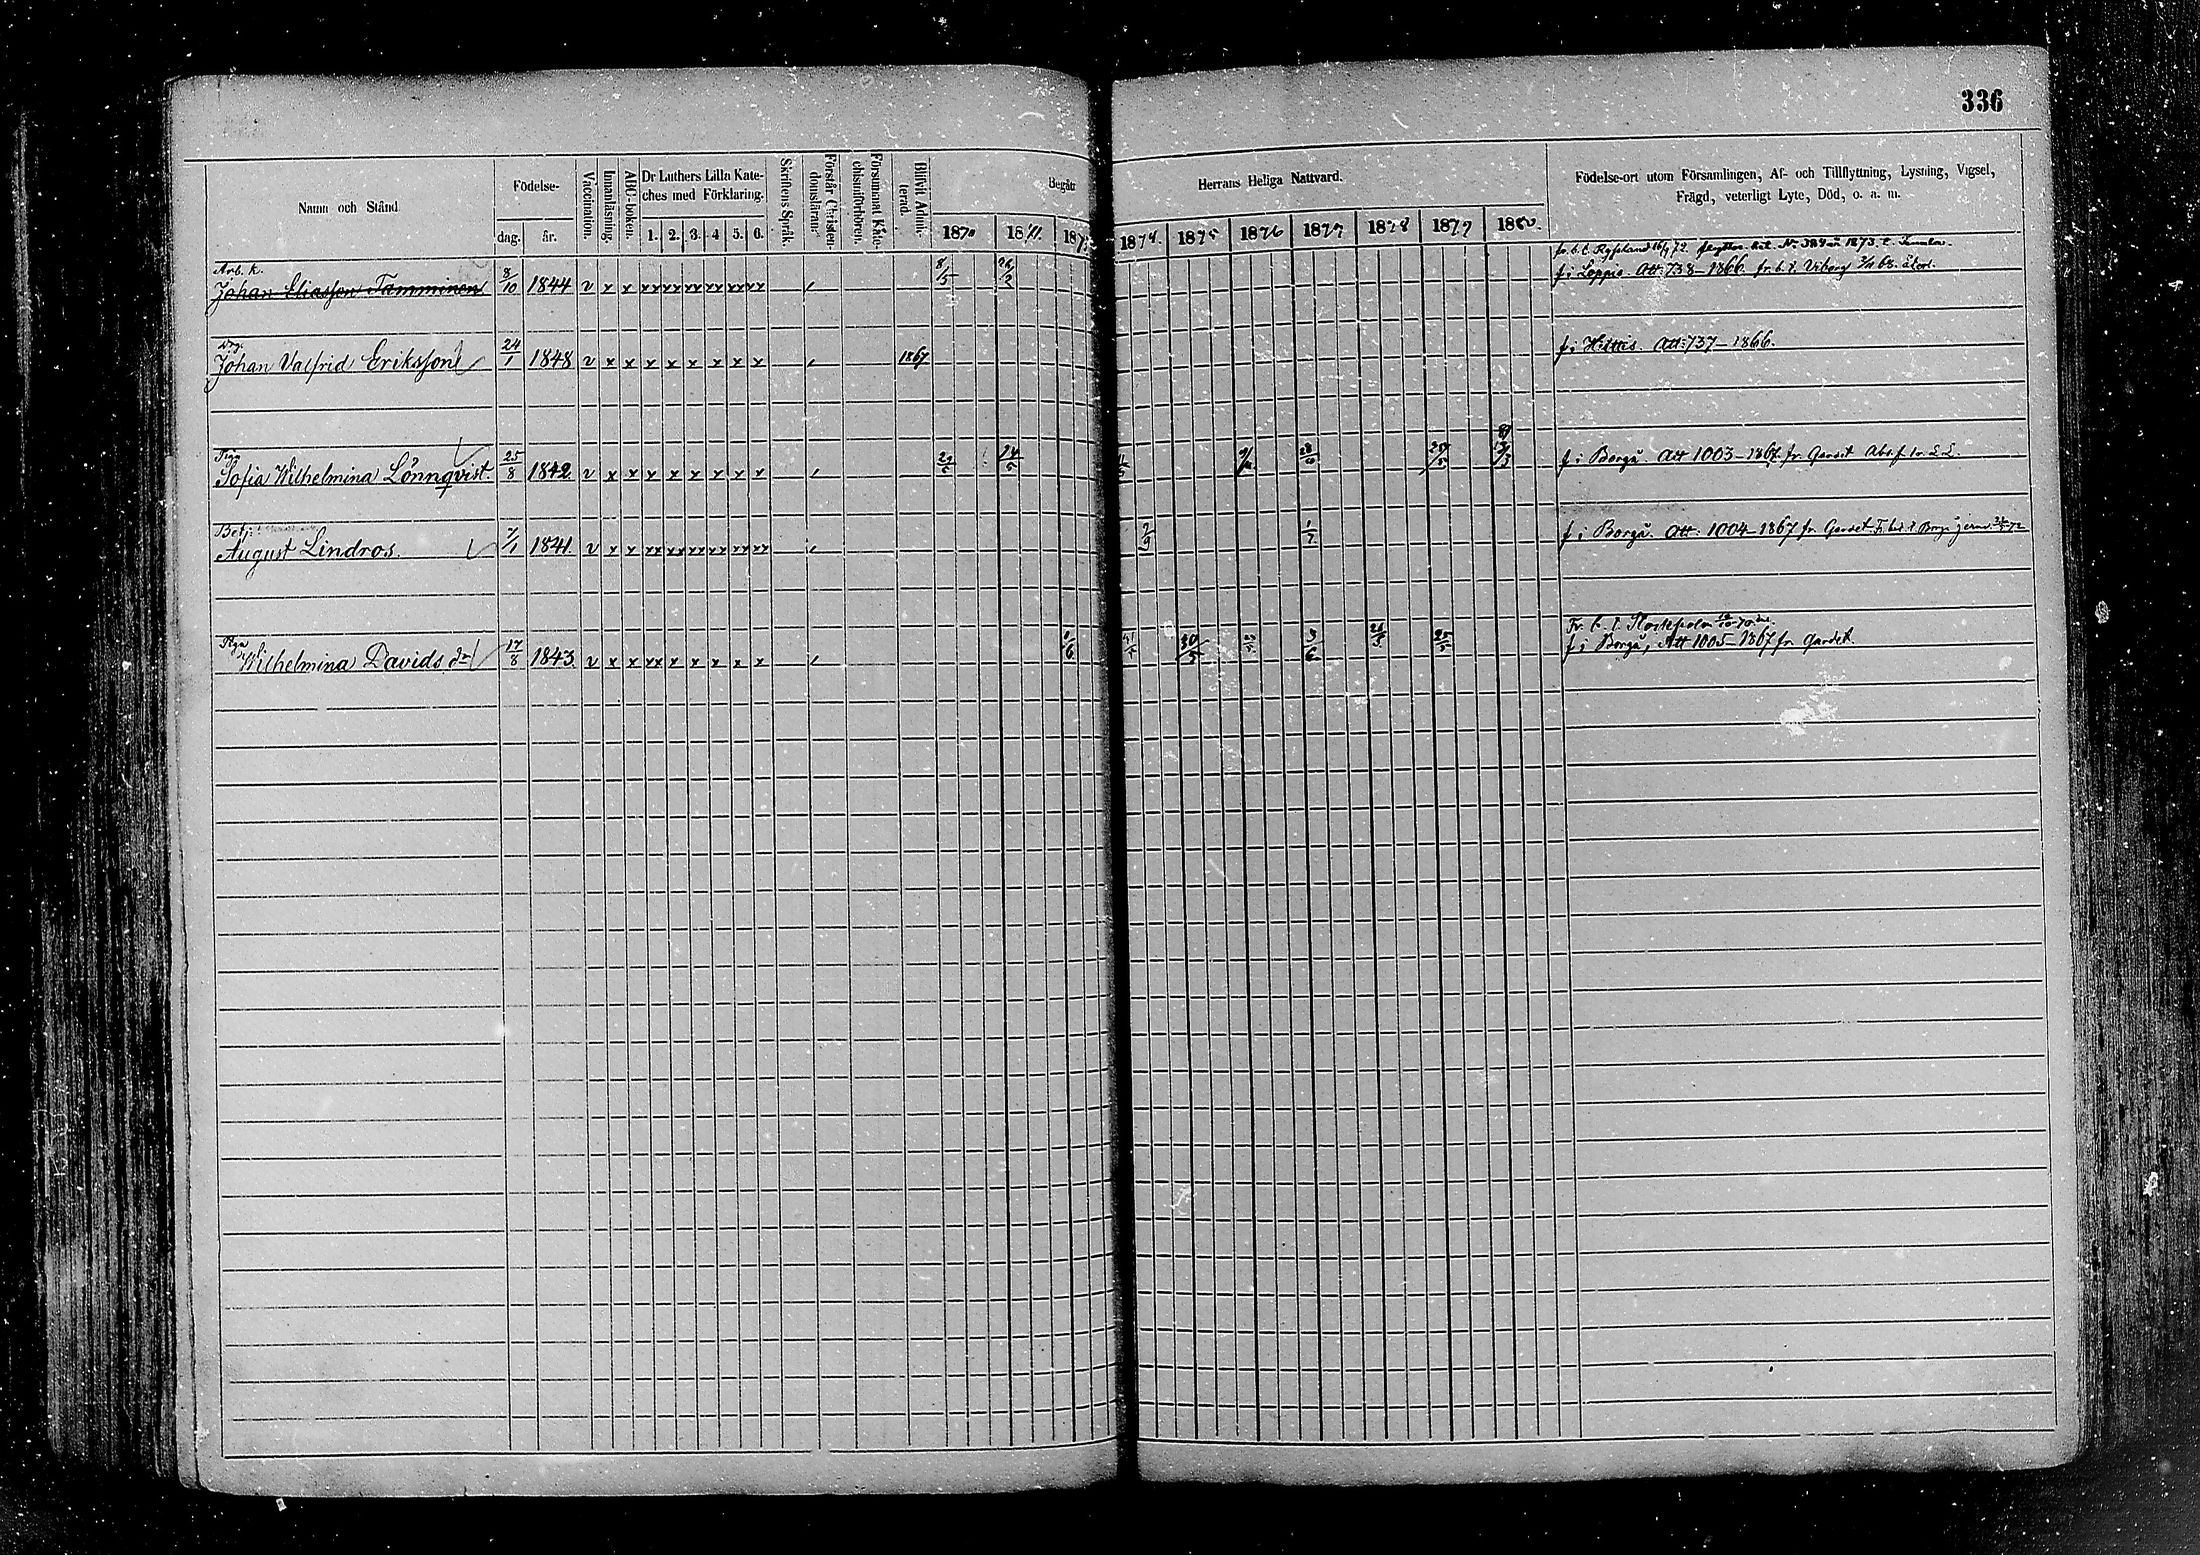 336
Namn och Stånd
Födelse-
dag. år.
Vaccination.
Innanläsning.
ABC-boken.
Dr Luthers Lilla Kate-
ches med Förklaring.
1. 2. 3. 4 5. 6.
Skriftens Språk.
Förstår Christen-
domsläran.
Försummat Kate-
chismiförhören.
Blifvit Admit-
terad.
Begått
Herrans Heliga Nattvard.
1870 1871. 187
1874. 1875 1876 1877 1878 1879 1880.
Födelse-ort utom Församlingen, Af- och Tillflyttning, Lysning, Vigsel,
Frägd, veterligt Lyte, Död, o. a. m.
Arb. k.
Johan Eliasson Tamminen 8/10 1844 v x x xx xx xx xx xx xx 8/5
fr. b. t. Ryssland 16/9 72. flyttar 1873.
f. i Loppis. Att: 738-1866. fr. b. t. Viborg 68.
Drg.
Johan Valfrid Eriksson 24/1 1848 v x x x x x x x x 1867
f. i Hittis. Att: 737-1866.
Piga
Sofia Wilhelmina Lönnqvist. 25/8 1842. v x x x x x x x x 24/5 13/3
f. i Borgå. Att 1003-1867 fr. Gardet
Betj:
August Lindros. 7/1 1841. v x x xx xx xx xx xx xx 2/9 1/7
f. i Borgå. Att: 1004-1867 fr. Gardet
Piga
Wilhelmina Davids dr 17/8 1843. v x x xx x x x x x 1/6 30/5 3/6 25/5
Fr. b. t. Stockholm
f. i Borgå, Att 1005-1867 fr. Gardet.